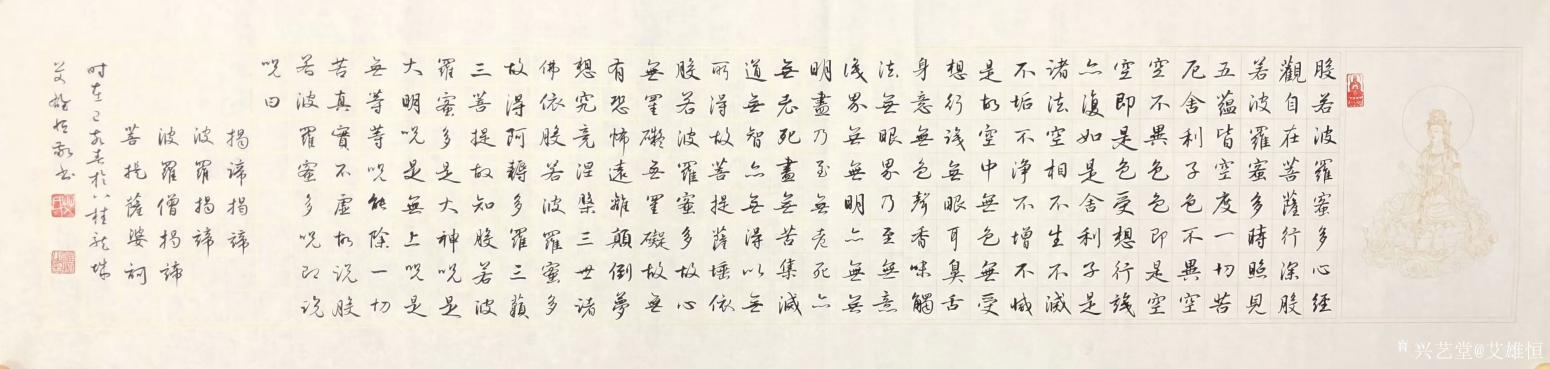 般若波羅蜜多心經
觀自在菩薩行深般
若波羅蜜多時照見
五蘊皆空度一切苦
厄舍利子色不異空
空不異色色即是空
空即是色受想行識
亦復如是舍利子是
諸法空相不生不滅
不垢不淨不增不減
是故空中無色無受
想行識無眼耳鼻舌
身意無色聲香味觸
法無眼界乃至無意
識界無無明亦無無
明盡乃至無老死亦
無老死盡無苦集滅
道無智亦無得以無
所得故菩提薩埵依
般若波羅蜜多故心
無罣礙無罣礙故無
有恐怖遠離顛倒夢
想究竟涅槃三世諸
佛依般若波羅蜜多
故得阿耨多羅三藐
三菩提故知般若波
羅蜜多是大神咒是
大明咒是無上咒是
無等等咒能除一切
苦真實不虛故説般
若波羅蜜多咒即説
咒曰
揭諦揭諦
波羅揭諦
波羅僧揭諦
菩提薩婆訶
時在己亥春於八桂龍城
艾雄恒敬書
兴艺堂@艾雄恒